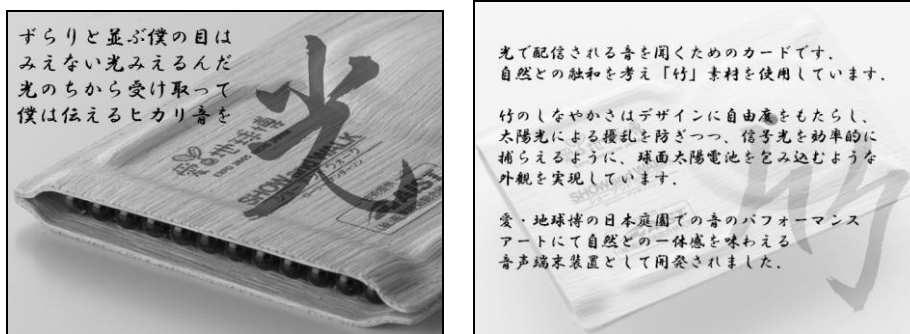 ずらりと並ぶ僕の目は
みえない光みえるんだ
光のちから受け取って
僕は伝えるヒカリ音を
光
愛・地球博
EXPO 2005
SHOW&WALK
AIST
光で配信される音を聞くためのカードです.
自然との融和を考え「竹」素材を使用しています.
竹のしなやかさはデザインに自由度をもたらし、
太陽光による擾乱を防ぎつつ、信号光を効率的に
捕らえるように、球面太陽電池を包み込むような
外観を実現しています.
愛・地球博の日本庭園での音のパフォーマンス
アートにて自然との一体感を味わえる
音声端末装置として開発されました.
竹